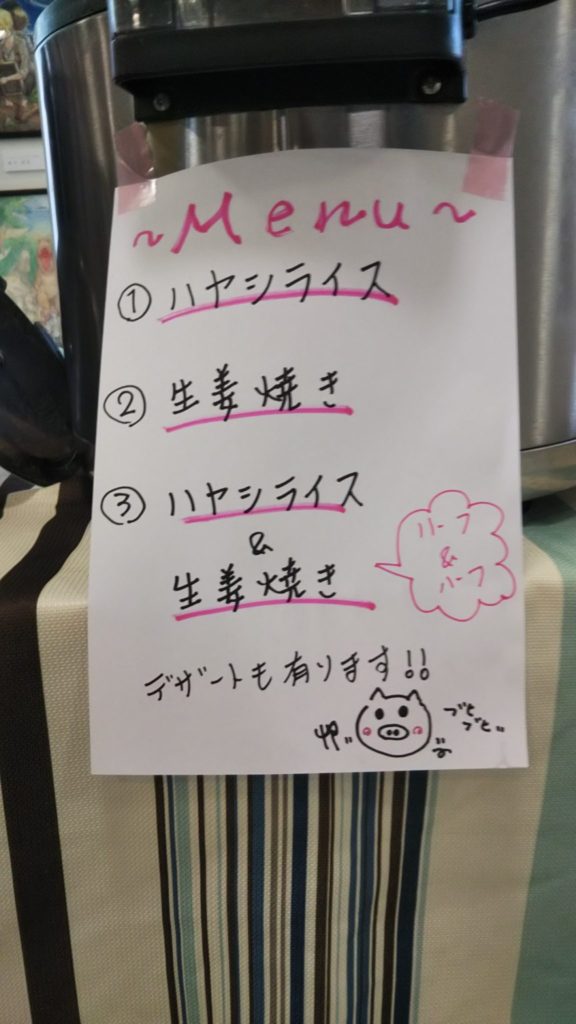 ~Menu~
① ハヤシライス
② 生姜焼き
③ ハヤシライス
&
生姜焼き
ハーフ
&
ハーフ
デザートも有ります!!
ブヒ
ブヒ